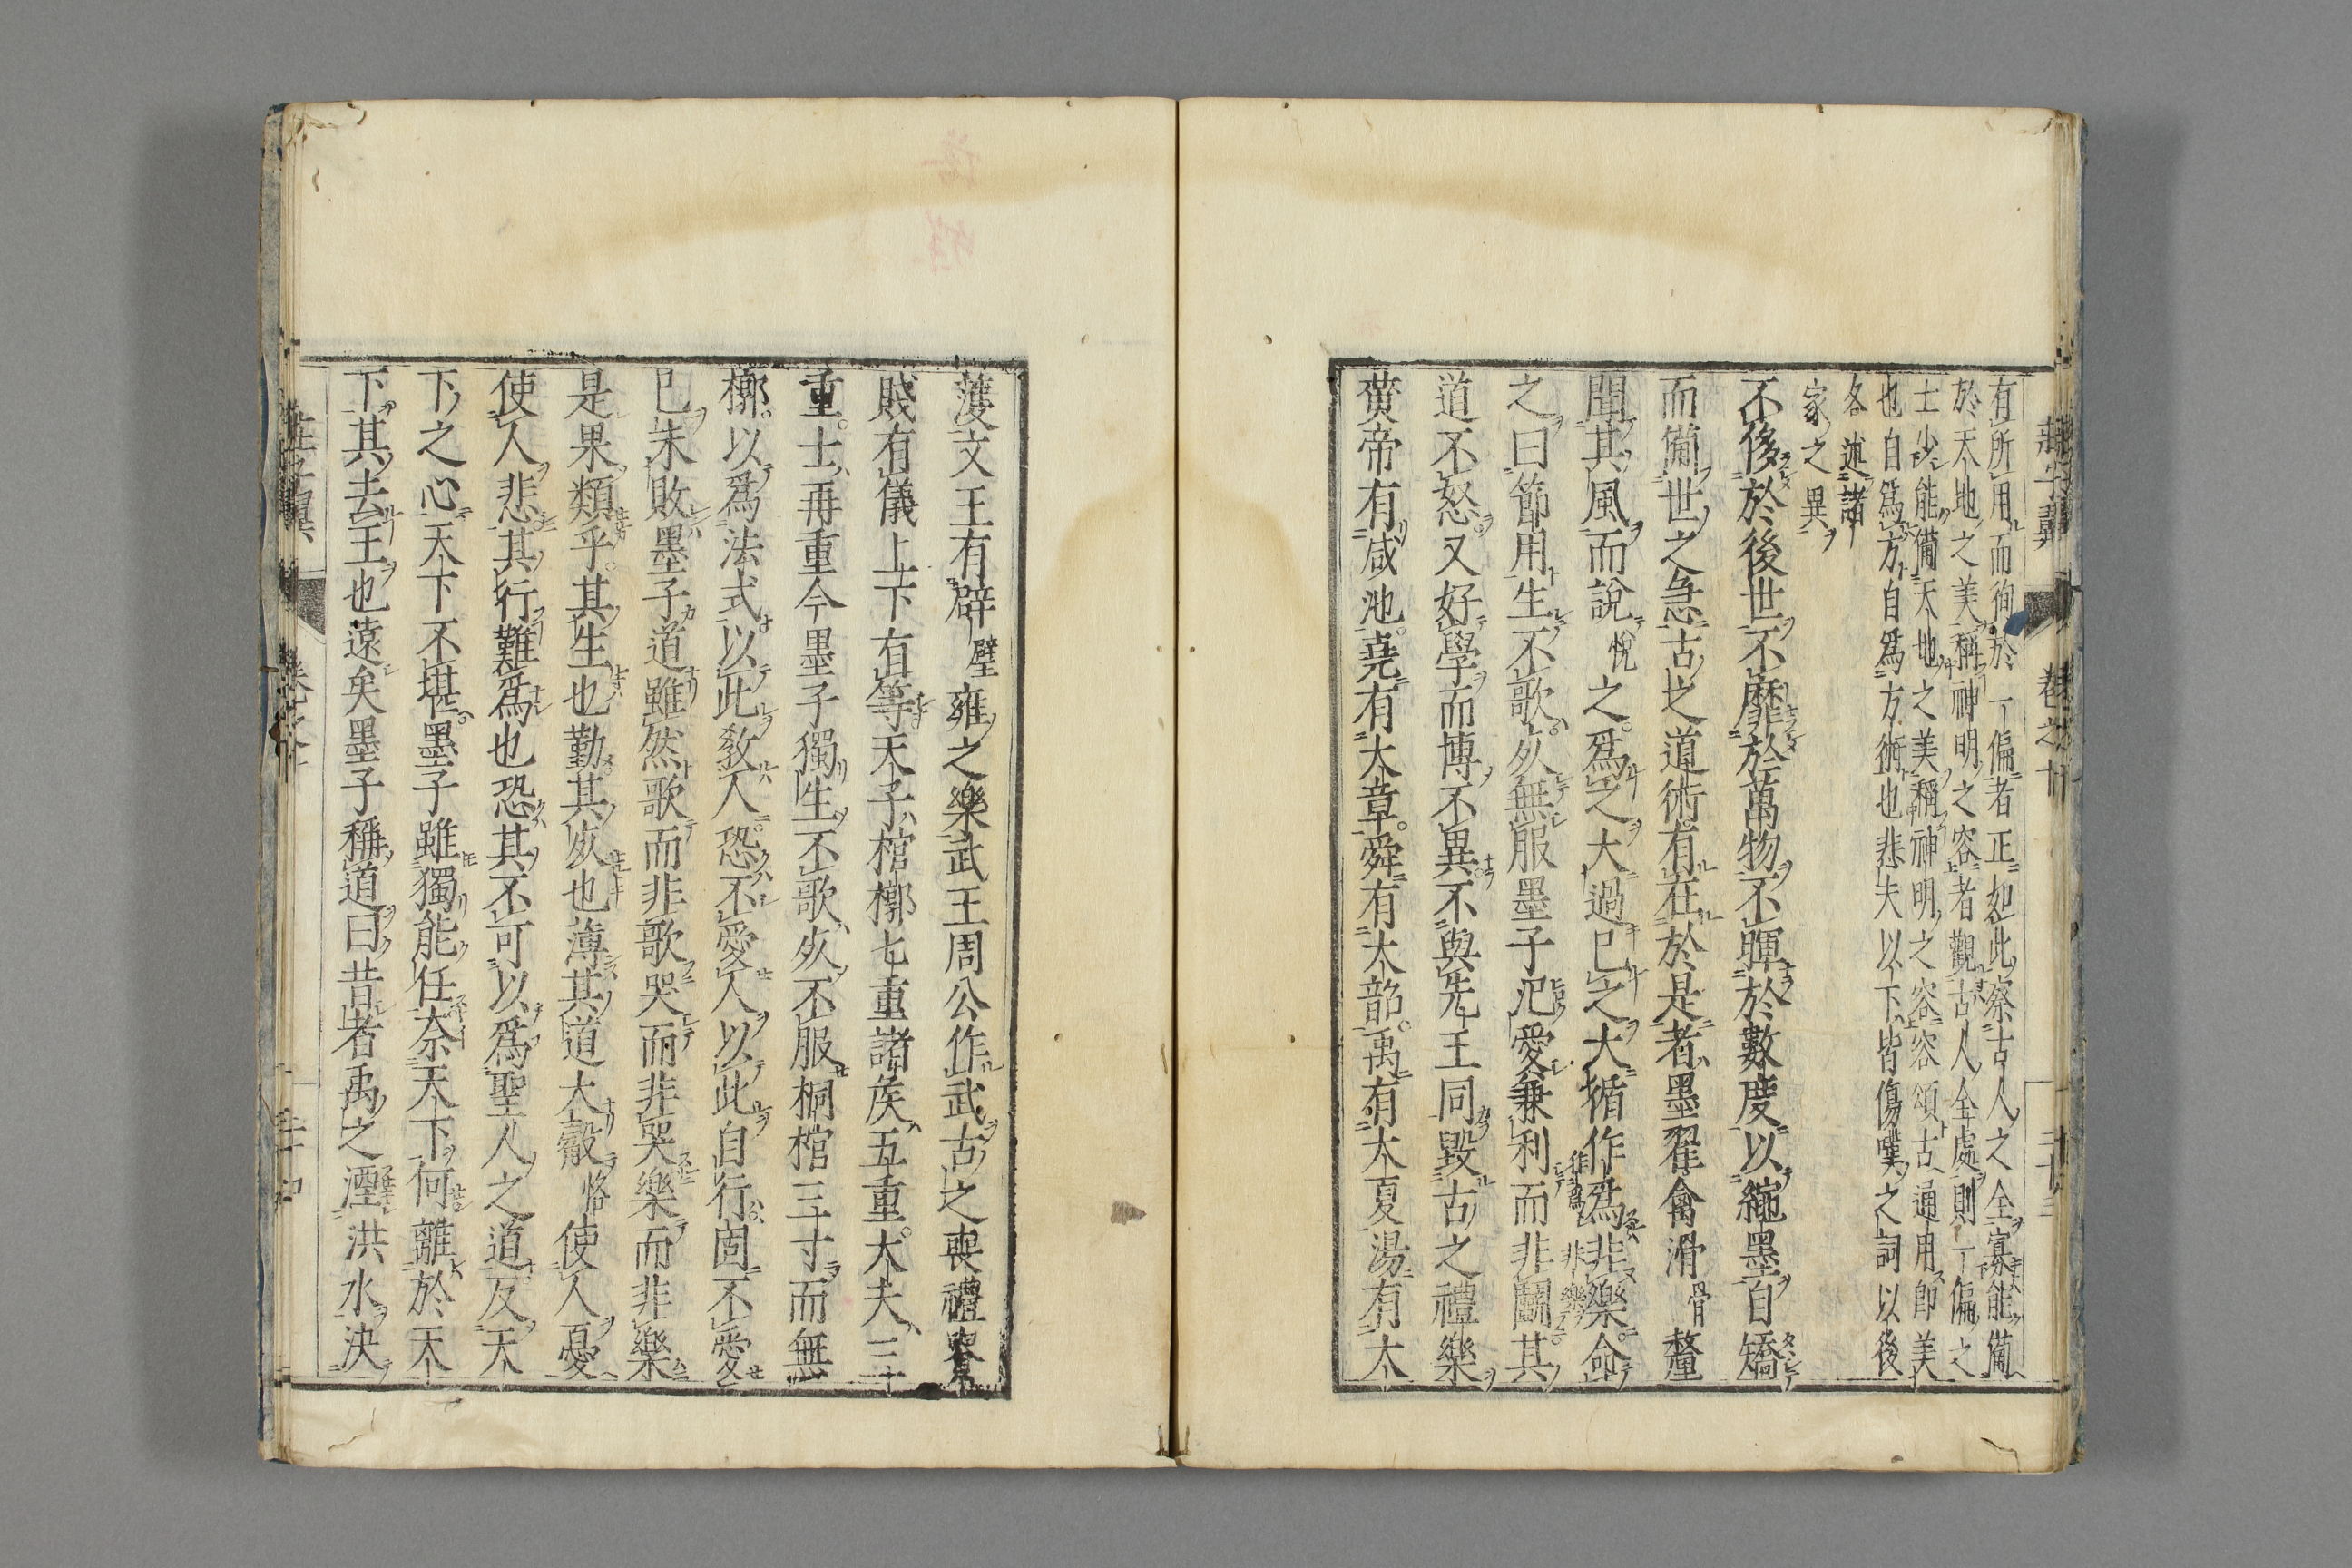 莊子翼 卷之十
有所用而徇於一偏者正如此察古人之全寡能備
於天地之美稱神明之容者觀古人全處則一偏之
士少能備天地之美稱神明之容容頌古通用即美
也自爲方自爲方術也悲夫以下皆傷嘆之詞以後
各述諸
家之異
不侈於後世不靡於萬物不暉於數度以繩墨自矯
而備世之急古之道術有在於是者墨翟禽滑骨釐
聞其風而說悅之爲之大過已之大循作爲非樂命
作爲 非樂
之曰節用生不歌死無服墨子氾愛兼利而非鬭其
道不怒又好學而博不異不與先王同毀古之禮樂
黃帝有咸池堯有大章舜有大韶禹有大夏湯有大
濩文王有辟壁雍之樂武王周公作武古之喪禮貴
賤有儀上下有等天子棺槨七重諸侯五重大夫三
重士再重今墨子獨生不歌死不服桐棺三寸而無
槨以爲法式以此敎人恐不愛人以此自行固不愛
已未敗墨子道雖然歌而非歌哭而非哭樂而非樂
是果類乎其生也勤其死也薄其道大觳恪使人憂
使人悲其行難爲也恐其不可以爲聖人之道反天
下之心天下不堪墨子雖獨能任奈天下何離於天
下其去王也遠矣墨子稱道曰昔者禹之湮洪水決
莊子翼